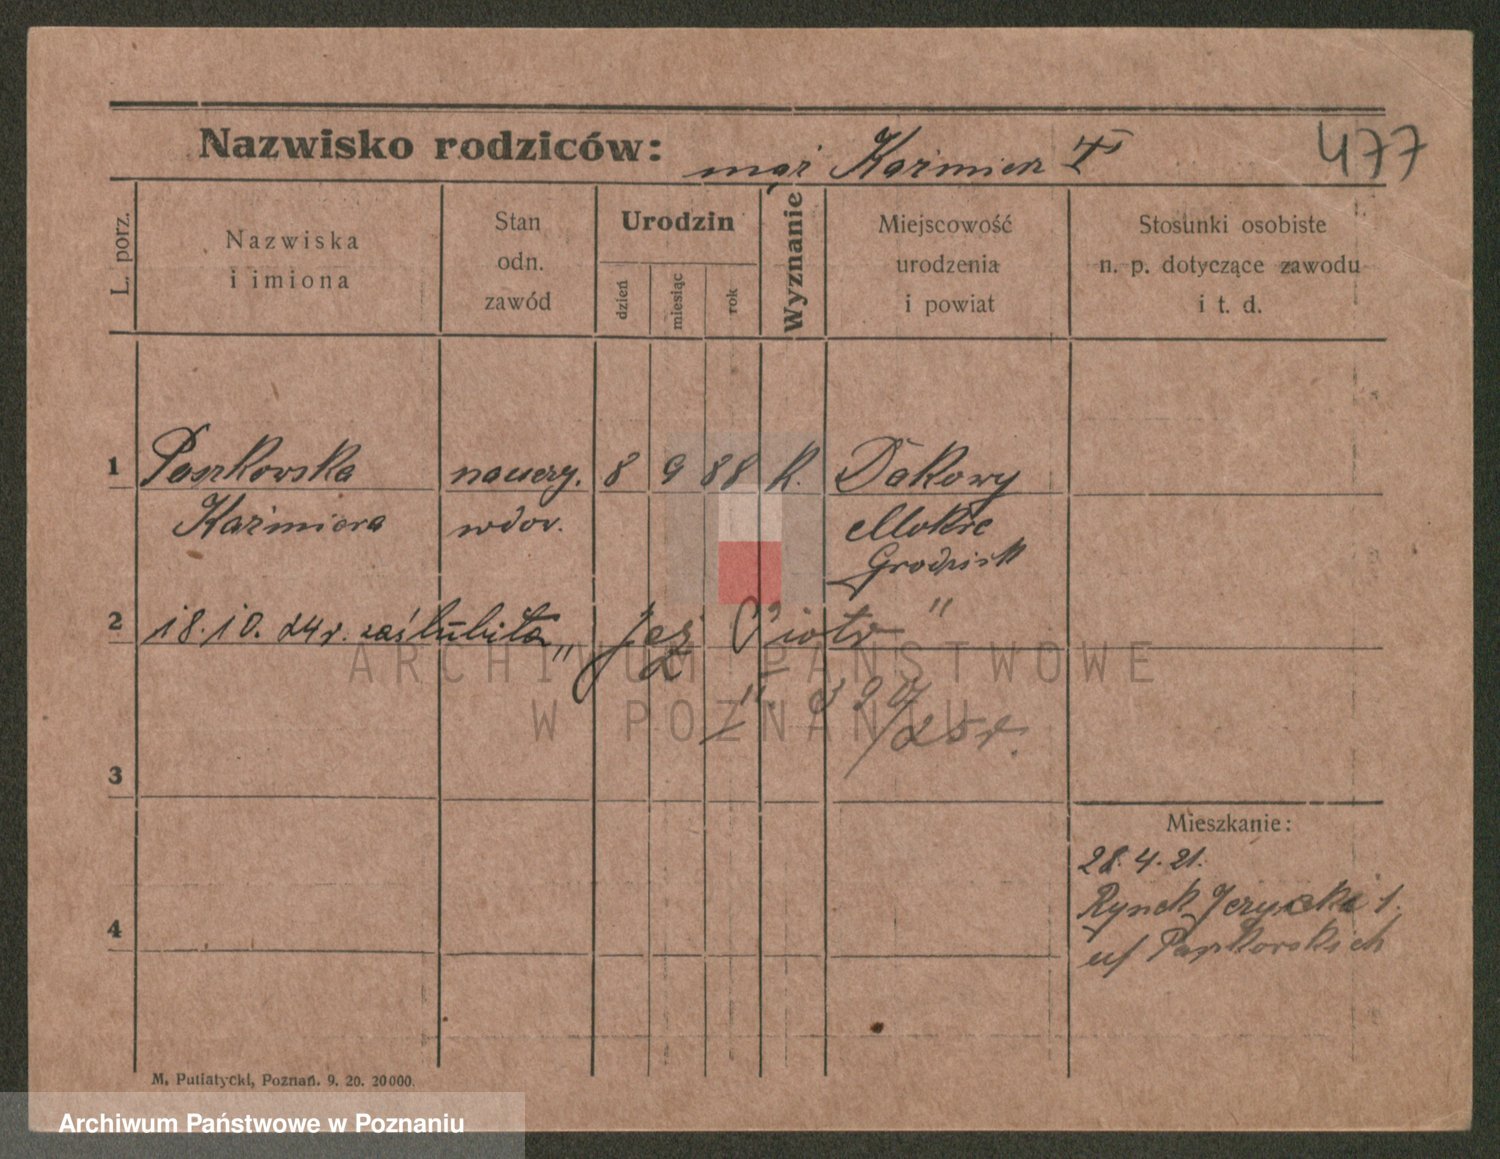 Nazwisko rodziców: mąż Kaźmierz † 477
L. porz.
Nazwiska
i imiona
Stan
odn.
zawód
Urodzin
dzień
miesiąc
rok
Wyznanie
Miejscowość
urodzenia
i powiat
Stosunki osobiste
n. p. dotyczące zawodu
i t. d.
1 Paszkowska nauczy. 8 9 88 k. Dakowy
Kaźmiera wdow. Mokre
Grodzisk
2 18.10.24 r. zaślubiła „Jeż Piotr"
25 r.
3
Mieszkanie:
28.4.21.
Rynek Jeżycki 1.
u/ Paszkowskich
4
M. Putiatycki, Poznań. 9. 20. 20000.
ARCHIWUM PAŃSTWOWE
W POZNANIU
Archiwum Państwowe w Poznaniu